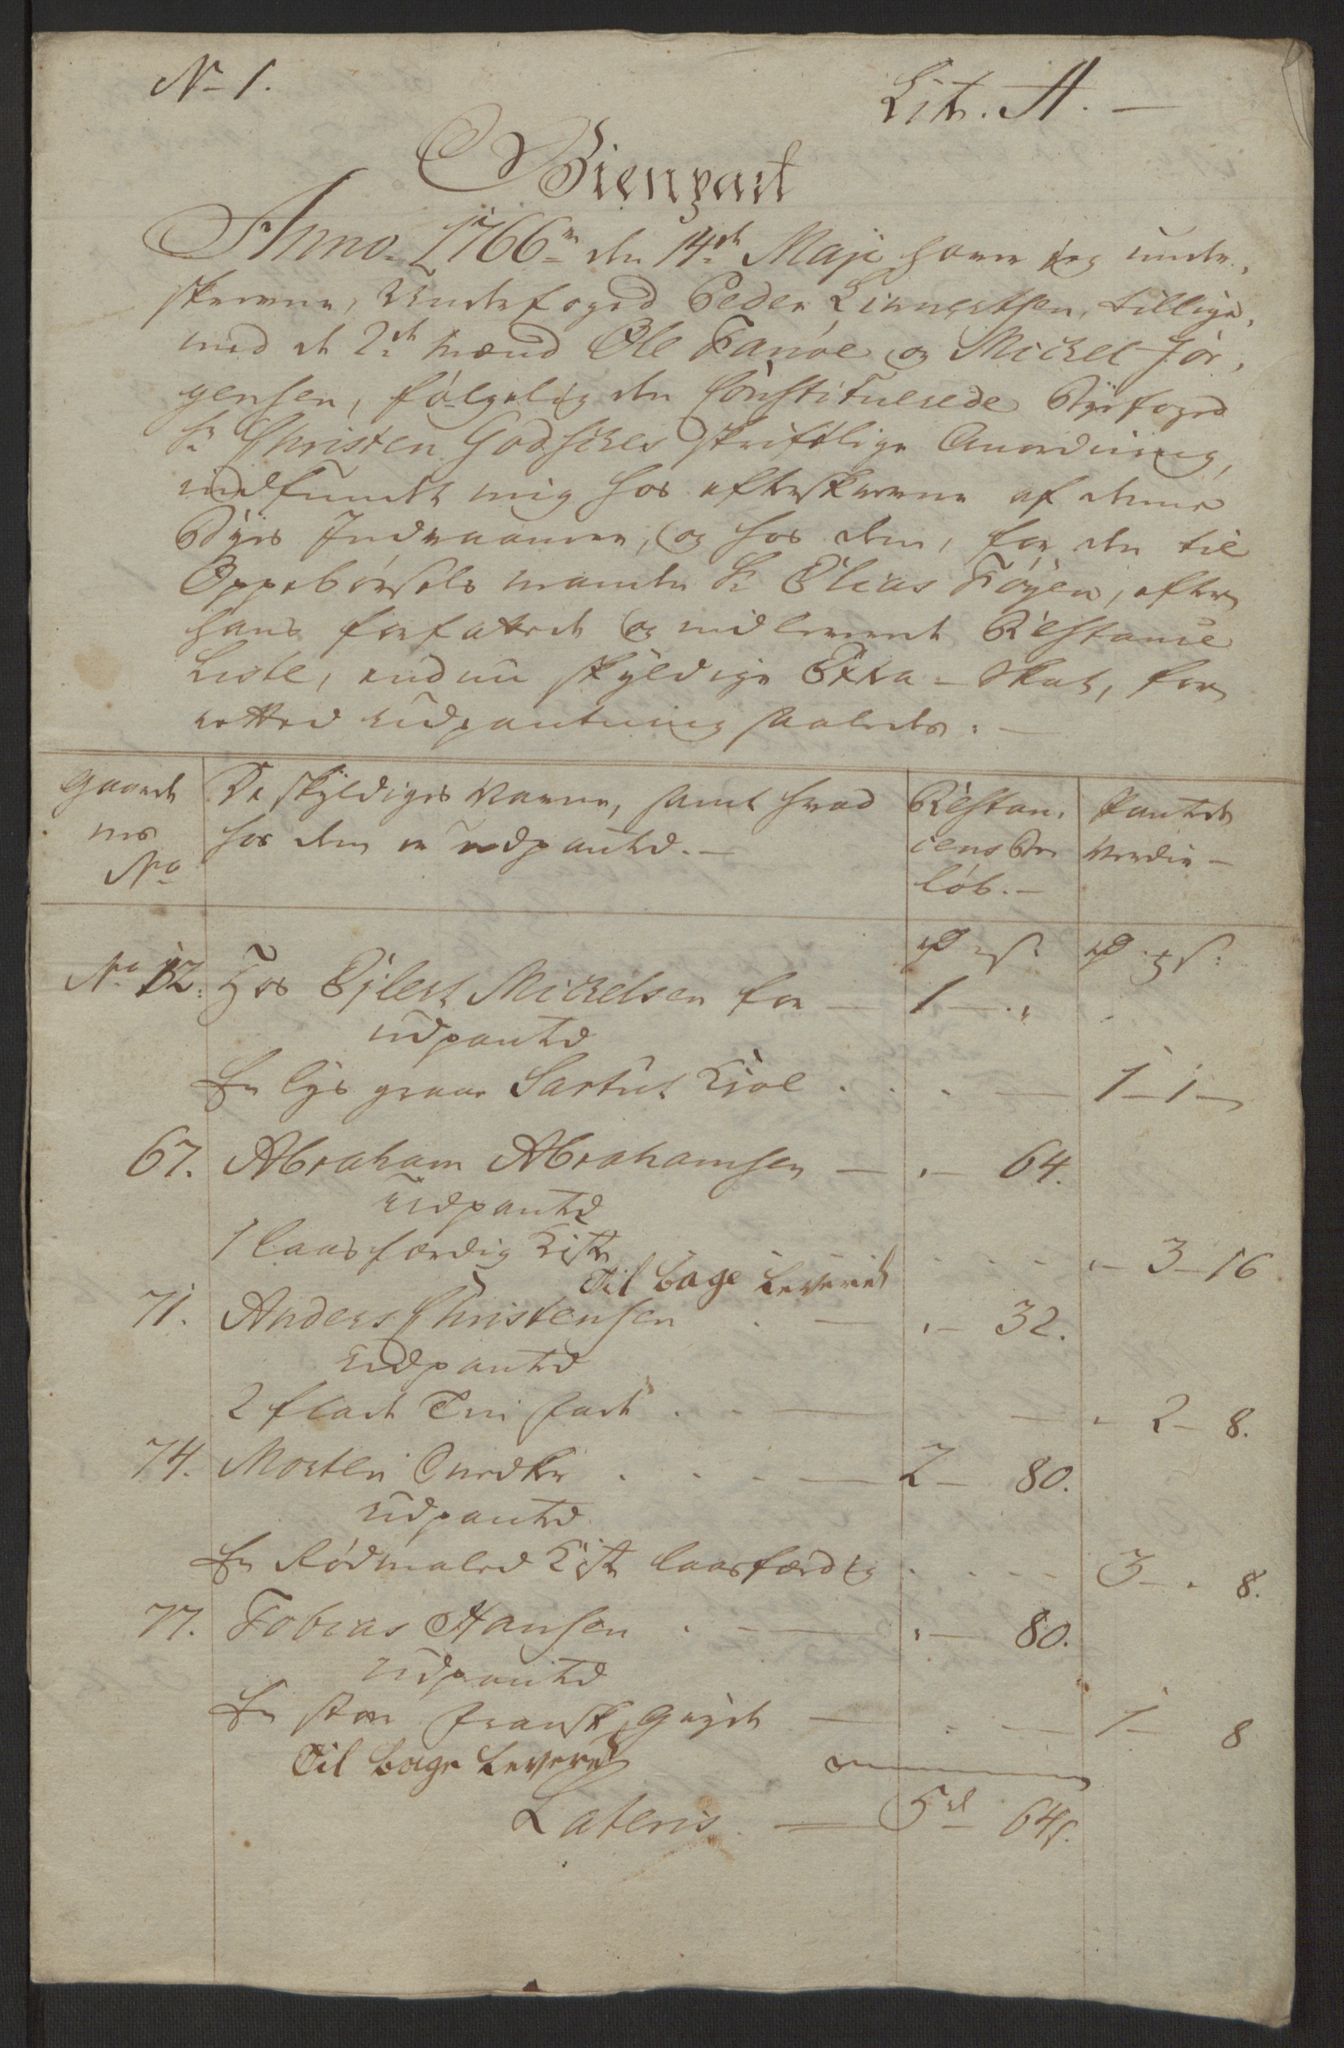 No 1.
Lit. A. —
Bienpart
Anno 1766 den 14de Maji haver jeg under,
skrevne, Underfoged Peder Linnertsen, tillige,
med de 2de Mænd Ole Fanøe og Mickel Jør,
gensen, følgelig den Constituerede Byefoged
Sr Christen Godsches skriftlige Anordning,
indfundet mig hos efterskrevne af denne
Byes Indvaanere, og hos dem, for den til
Oppebørsels Manden Sr Elias Føyen, efter
hans forfattet og indleveret Restance
Liste, endnu skyldige Extra-Skat, for
rettet Udpantning saaledes. —
Gaardenes No
De skyldiges Navne, samt hvad
hos dem er udpanted. —
Restan,
cens Be
løb. —
Pantets
Verdie —
rd ß: rd ort ß:
No 12. Hos Ejlert Mickelsen for — 1 — „
udpanted
En lys graae Sartut Kiol . . . — 1 — 1 —
67. Abraham Abrahamsen — „ — 64.
Udpanted
1 laasfærdig Kiste . . . . „ — 3 — 16
Til bage Leveret
71. Anders Christensen . — „ — 32.
Udpanted
2 flade Tin fade . . — „ — 2 — 8.
74. Morten . . . — 2 — 80.
Udpanted
En Rødmaled Kiste laasfærdig . . . . 3 — „ 8.
77. Tobias Hansen . — — „ — 80.
Udpanted
En stor fransk Gryde — . — 1 — 8
Til bage Leveret
Lateris — 5rd 64ß.